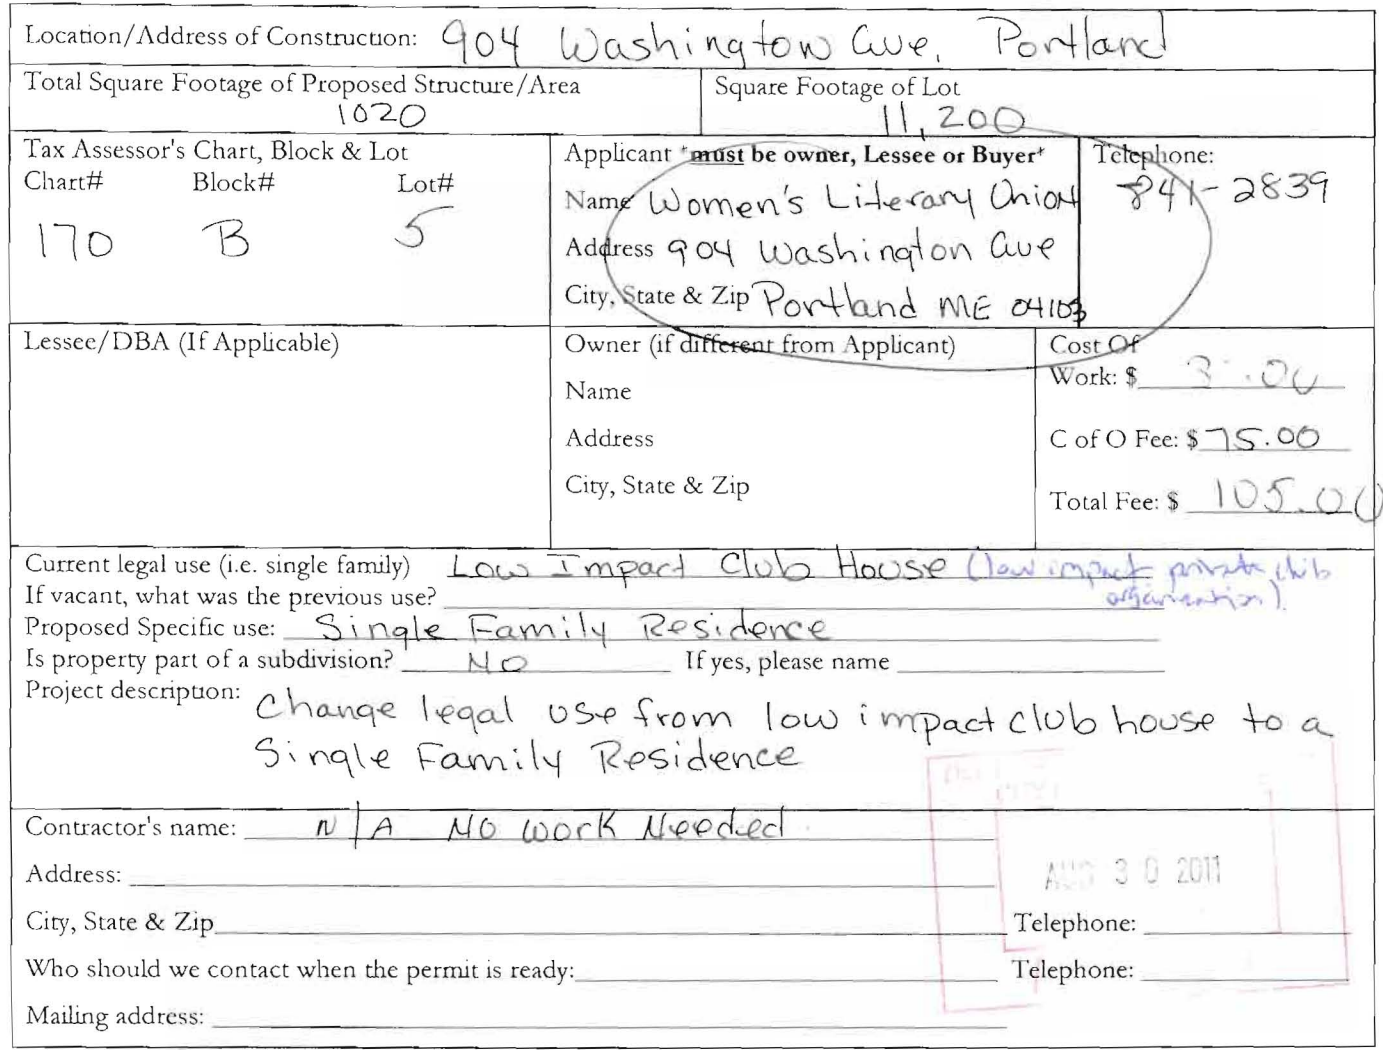 Location/Address of Construction: 904 Washington Ave, Portland
Total Square Footage of Proposed Structure/Area
1020
Square Footage of Lot
11,200
Tax Assessor's Chart, Block & Lot
Chart# Block# Lot#
170 B 5
Applicant *must be owner, Lessee or Buyer*
Name Women's Literary Union
Address 904 Washington Ave
City, State & Zip Portland ME 04103
Telephone:
841-2839
Lessee/DBA (If Applicable)
Owner (if different from Applicant)
Name
Address
City, State & Zip
Cost Of
Work: $
C of O Fee: $ 75.00
Total Fee: $ 105.00
Current legal use (i.e. single family) Low Impact Club House (low impact private club
organization).
If vacant, what was the previous use?
Proposed Specific use: Single Family Residence
Is property part of a subdivision? No If yes, please name
Project description:
Change legal use from low impact club house to a
Single Family Residence
Contractor's name: N/A No Work Needed
Address:
AUG 30 2011
City, State & Zip Telephone:
Who should we contact when the permit is ready: Telephone:
Mailing address: